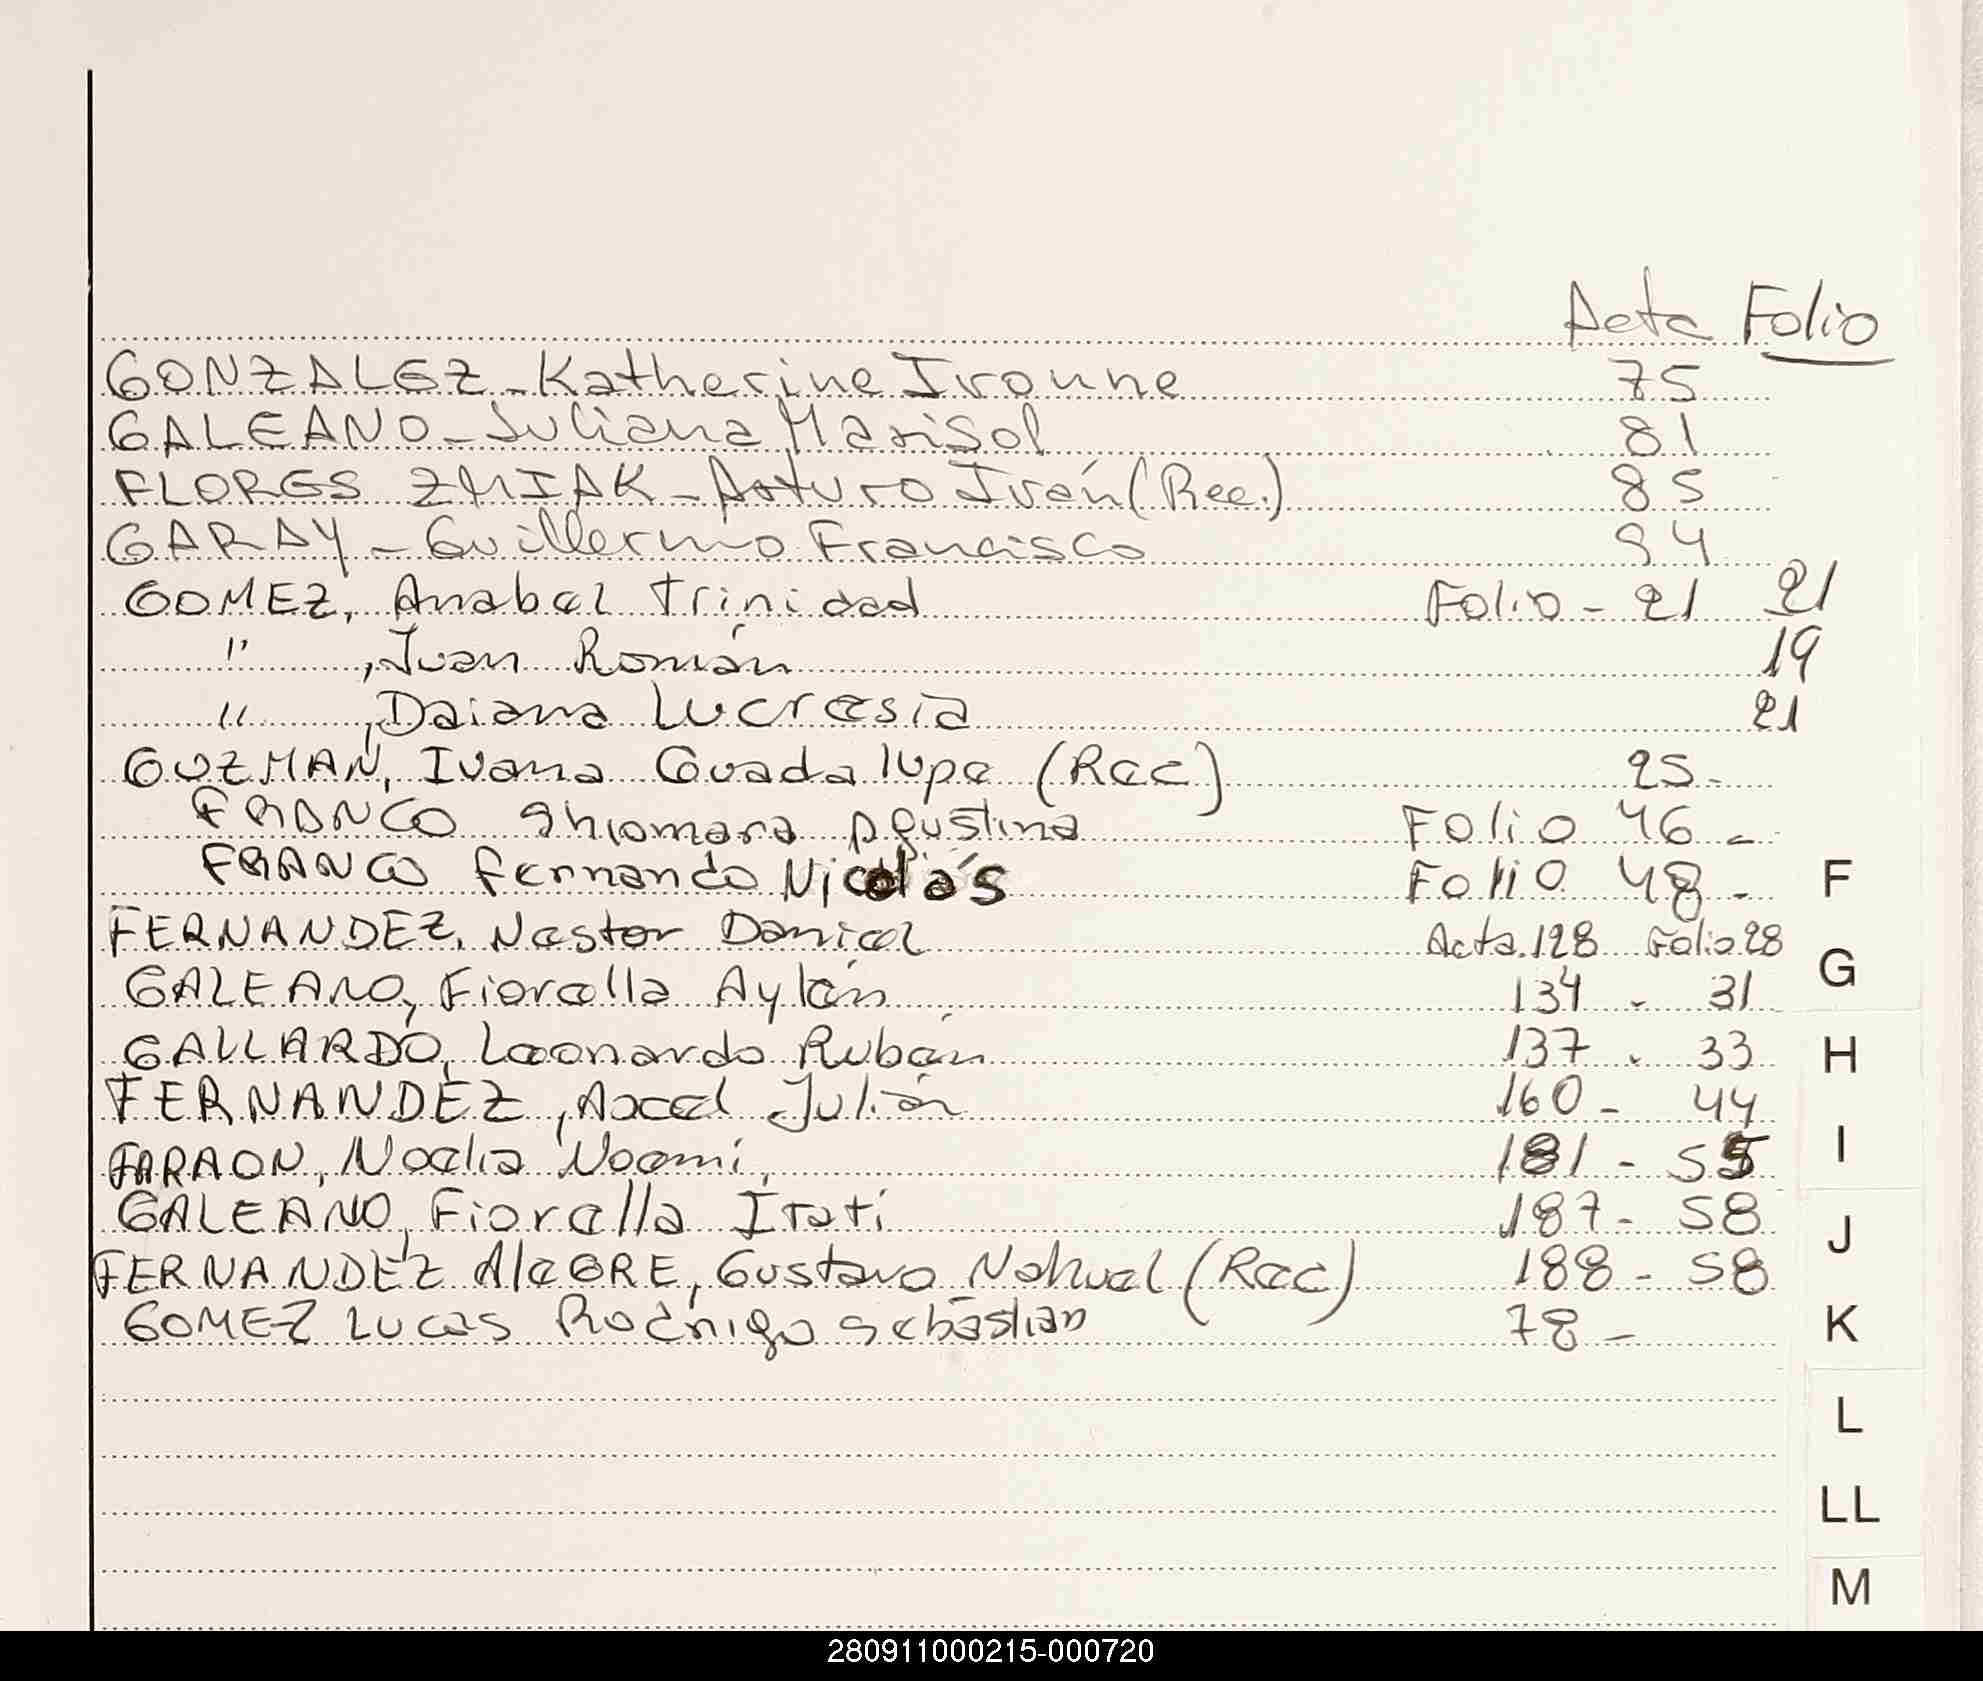 Acta Folio
GONZALEZ - Katherine Ivonne 75
GALEANO - Juliana Marisol 81
FLORES ZMIAK - Arturo Iván (Rec.) 85
GARAY - Guillermo Francisco 94
GOMEZ, Anabel Trinidad Folio - 21 21
" , Juan Román 19
" , Daiana Lucresia 21
GUZMAN, Ivana Guadalupe (Rec) 25-
FRANCO Ghiomara Agustina Folio 46 -
FRANCO Fernando Nicolás Folio 48 - F
FERNANDEZ, Nestor Daniel Acta 128 Folio 28
GALEANO, Fiorella Aylén 134 - 31 G
GALLARDO, Leonardo Rubén 137 - 33 H
FERNANDEZ, Axel Julián 160 - 44
FARAON, Noelia Noemi 181 - 55 I
GALEANO, Fiorella Itatí 187 - 58 J
FERNANDEZ AleGRE, Gustavo Nahuel (Rec) 188 - 58
GOMEZ Lucas Rodrigo Sebastian 78 - K
L
LL
M
280911000215-000720